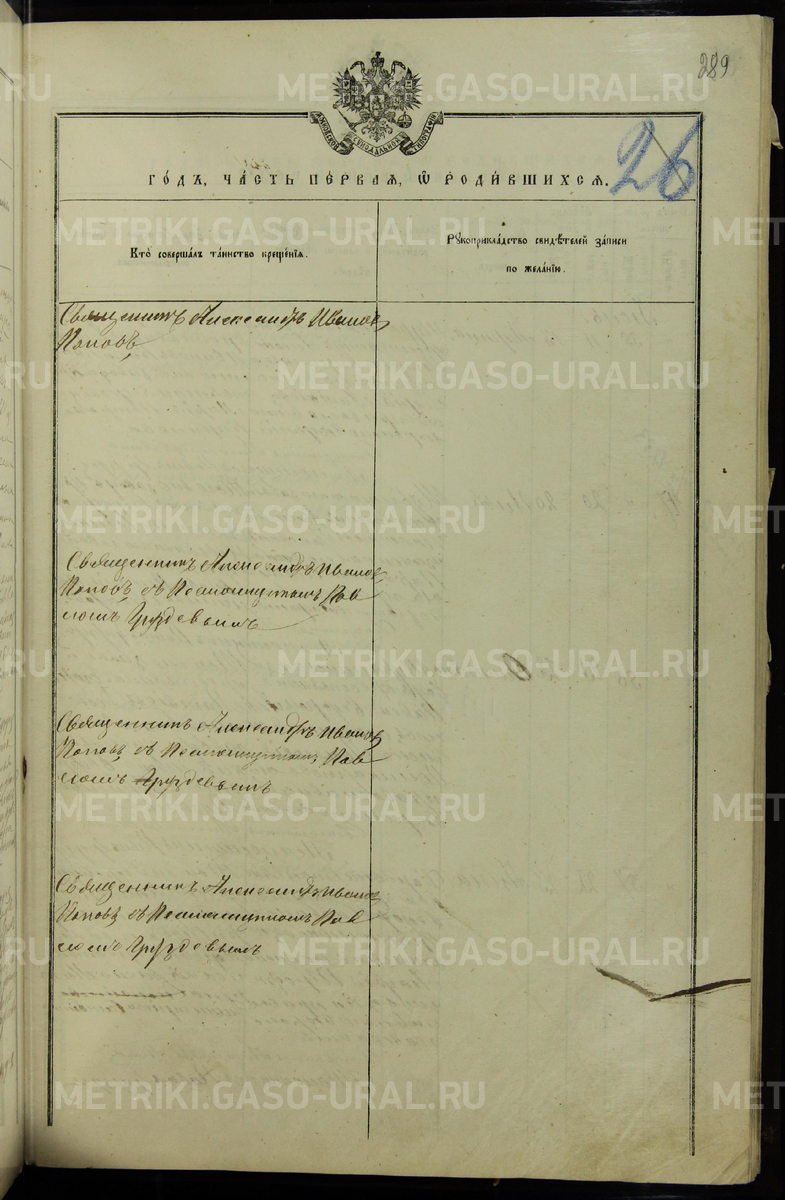 289
26
МОСКОВСКОЙ СѴНОДАЛЬНОЙ ТИПОГРАФІИ
ГО́ДЪ, ЧА́СТЬ ПЕ́РВАЯ, Ѡ РОДИ́ВШИХСЯ.
Кто̀ совершалъ та́инство креще́нїя.
Рꙋкоприкла́дство свидѣ́телей за́писи
по жела́нїю.
Священникъ Александръ Иванов
Поповъ
Священникъ Александръ Иванов
Поповъ съ Псаломщикомъ Пав
ломъ Груздевымъ
Священникъ Александръ Иванов
Поповъ съ Псаломщикомъ Пав
ломъ Груздевымъ
Священникъ Александръ Иванов
Поповъ съ Псаломщикомъ Пав
ломъ Груздевымъ
METRIKI.GASO-URAL.RU